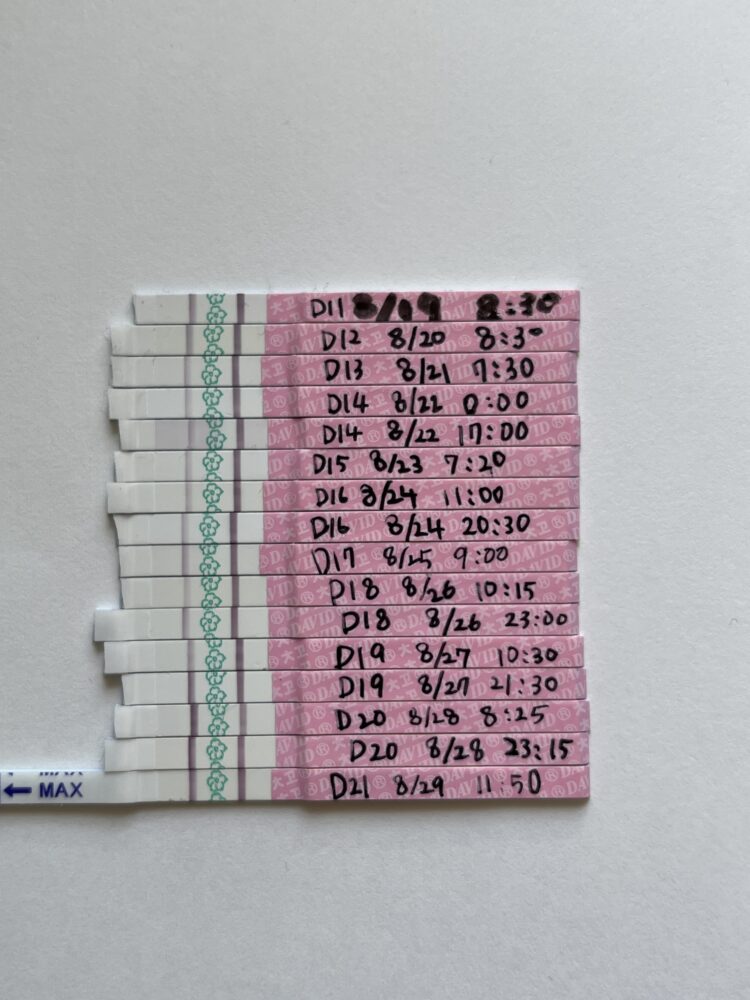 D11 8/19 8:30
D12 8/20 8:30
D13 8/21 7:30
D14 8/22 0:00
D14 8/22 17:00
D15 8/23 7:20
D16 8/24 11:00
D16 8/24 20:30
D17 8/25 9:00
D18 8/26 10:15
D18 8/26 23:00
D19 8/27 10:30
D19 8/27 21:30
D20 8/28 8:25
D20 8/28 23:15
← MAX D21 8/29 11:50
大卫 DAVID®